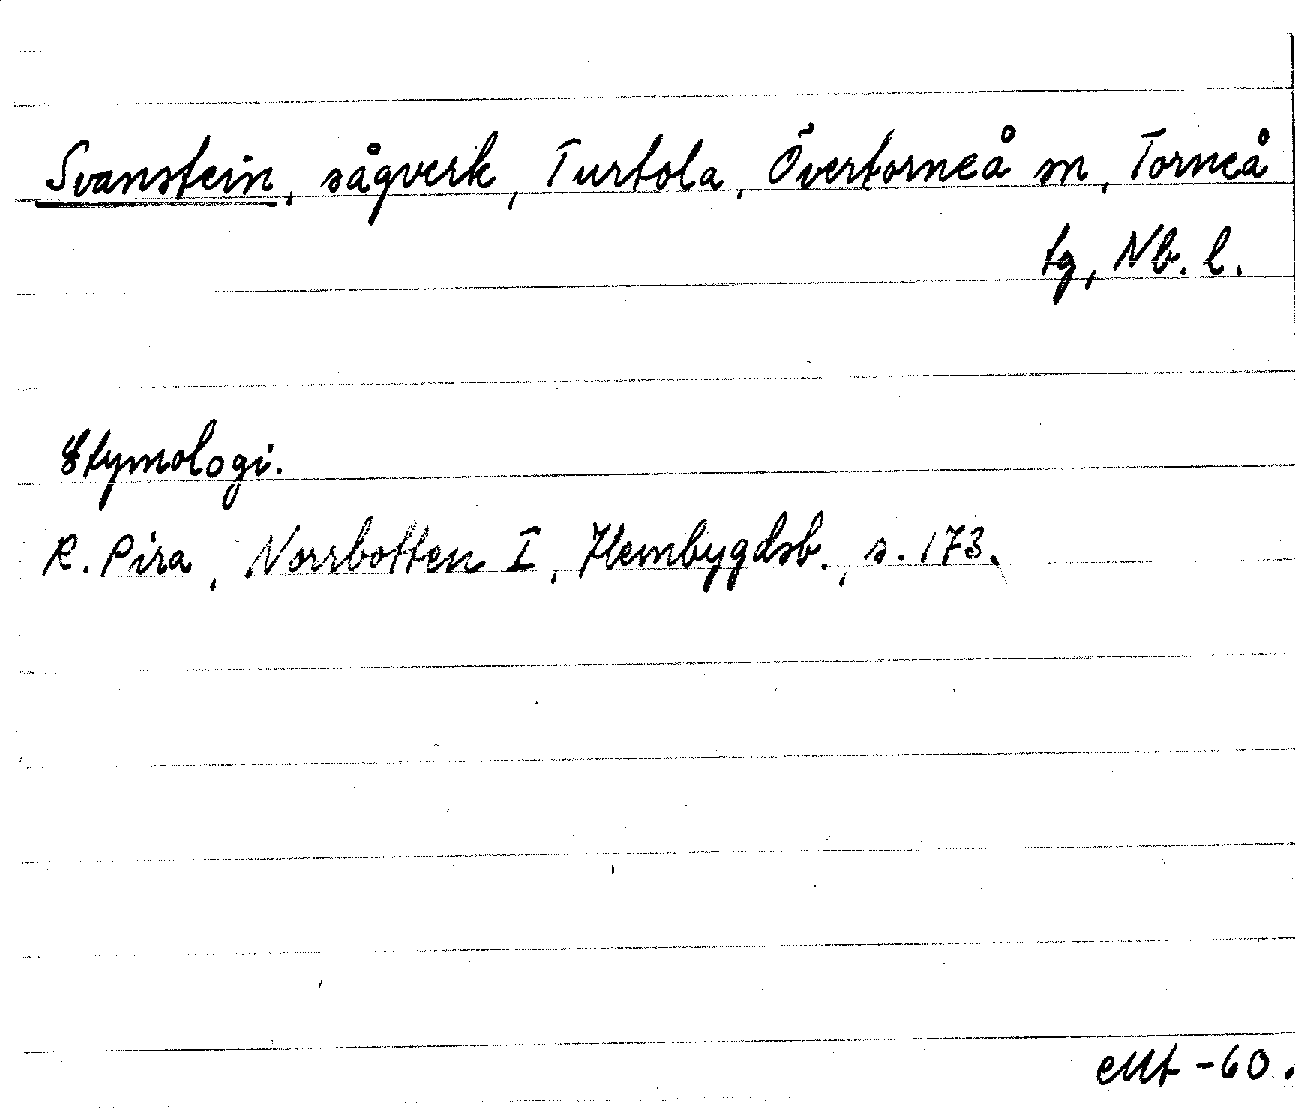 Svanstein, sågverk, Turtola, Övertorneå sn, Torneå
tg, Nb. l.
Etymologi.
R. Pira, Norrbotten I, Hembygdsb., s. 173.
-60.